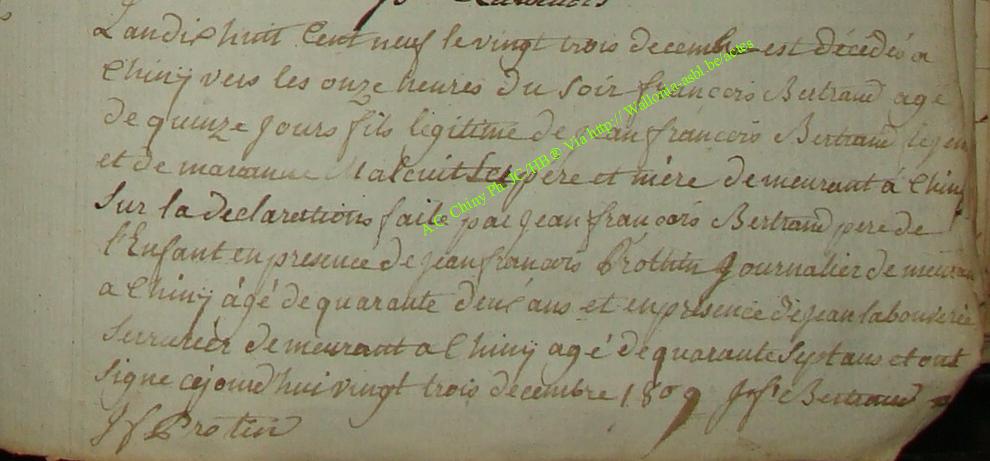 Landix huit Cent neuf le vingt trois decembre est décédé a
Chiny vers les onze heures du soir françois Bertrand agé
de quinze Jours fils légitime de jean françois Bertrand
et de marianne Malcuit père et mère demeurant à Chiny
Sur la declaration faite par jean françois Bertrand pere de
l'Enfant en presence de jean francois Prothin Journalier demeurant
a Chiny âgé de quarante deux ans et en présence de jean
Serrurier demeurant a Chiny agé de quarante Sept ans et ont
Signe cejourdhui vingt trois decembre 1809 Jfs Bertrand
Jf Protin
A.C. Chiny Ph. JC/HB ® Via http://Wallonia-asbl.be/actes